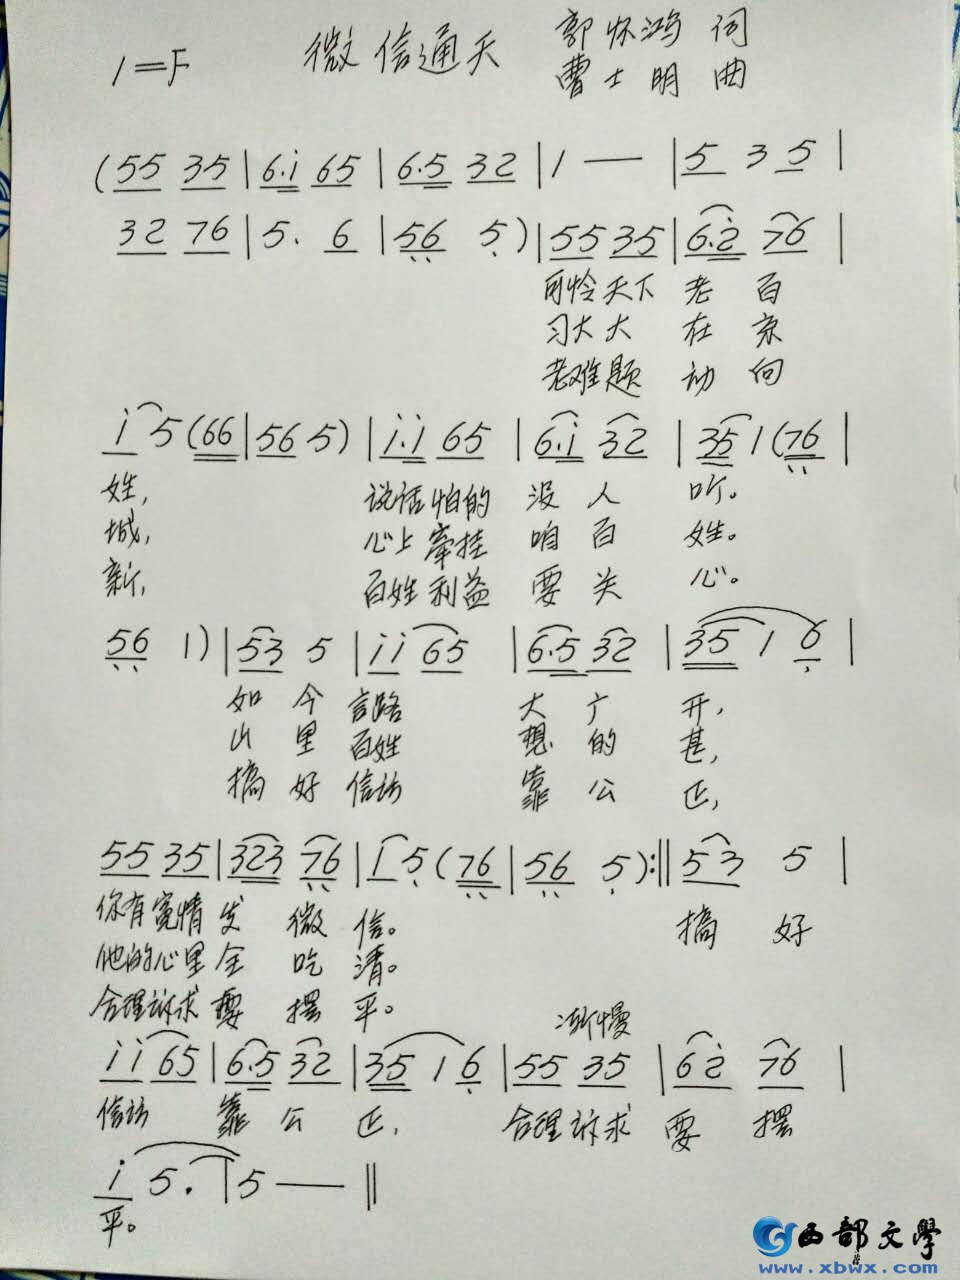 1=F 微信通天 郭怀鸿 词
曹士明 曲
(55 35|6.i 65|6.5 32|1 —|5 3 5|
32 76|5. 6|56 5)|55 35|6.2 76|
可怜天下 老 百
习大大 在 京
老难题 动 向
i 5(66|56 5)|i.i 65|6.i 32|35 1(76|
姓, 说话怕的 没 人 听。
城, 心上牵挂 咱 百 姓。
新, 百姓利益 要 关 心。
56 1)|53 5|ii 65|6.5 32|35 1 6|
如 今 言路 大 广 开,
山 里 百姓 想 的 甚,
搞 好 信访 靠 公 正,
55 35|323 76|1 5(76|56 5):‖53 5|
你有冤情 发 微 信。 搞 好
他的心里 全 吃 清。
合理诉求 要 摆 平。
渐慢
ii 65|6.5 32|35 1 6|55 35|62 76|
信访 靠 公 正, 合理诉求 要 摆
i 5.|5 —‖
平。
西部文学
www.xbwx.com